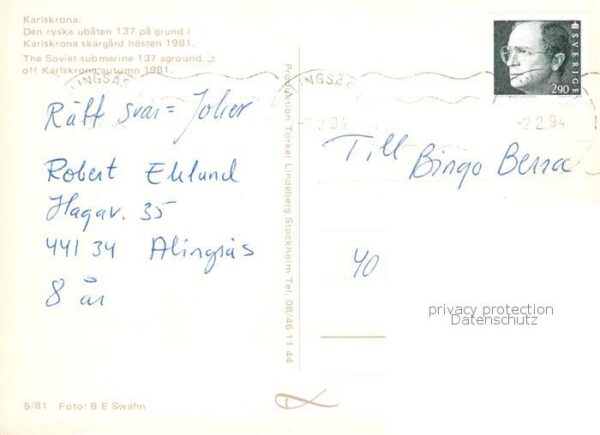 Karlskrona.
Den ryska ubåten 137 på grund i
Karlskrona skärgård hösten 1981.
The Soviet submarine 137 aground
off Karlskrona autumn 1981.
Rätt svar = Joker
Robert Eklund
Hagav. 35
441 34 Alingsås
8 år
5/81 Foto: B E Swahn
Produktion Torkel Lindeberg Stockholm Tel. 08/46 11 44
SVERIGE
290
INGSÅS
-2.2.94
Till Bingo Berra
40
privacy protection
Datenschutz